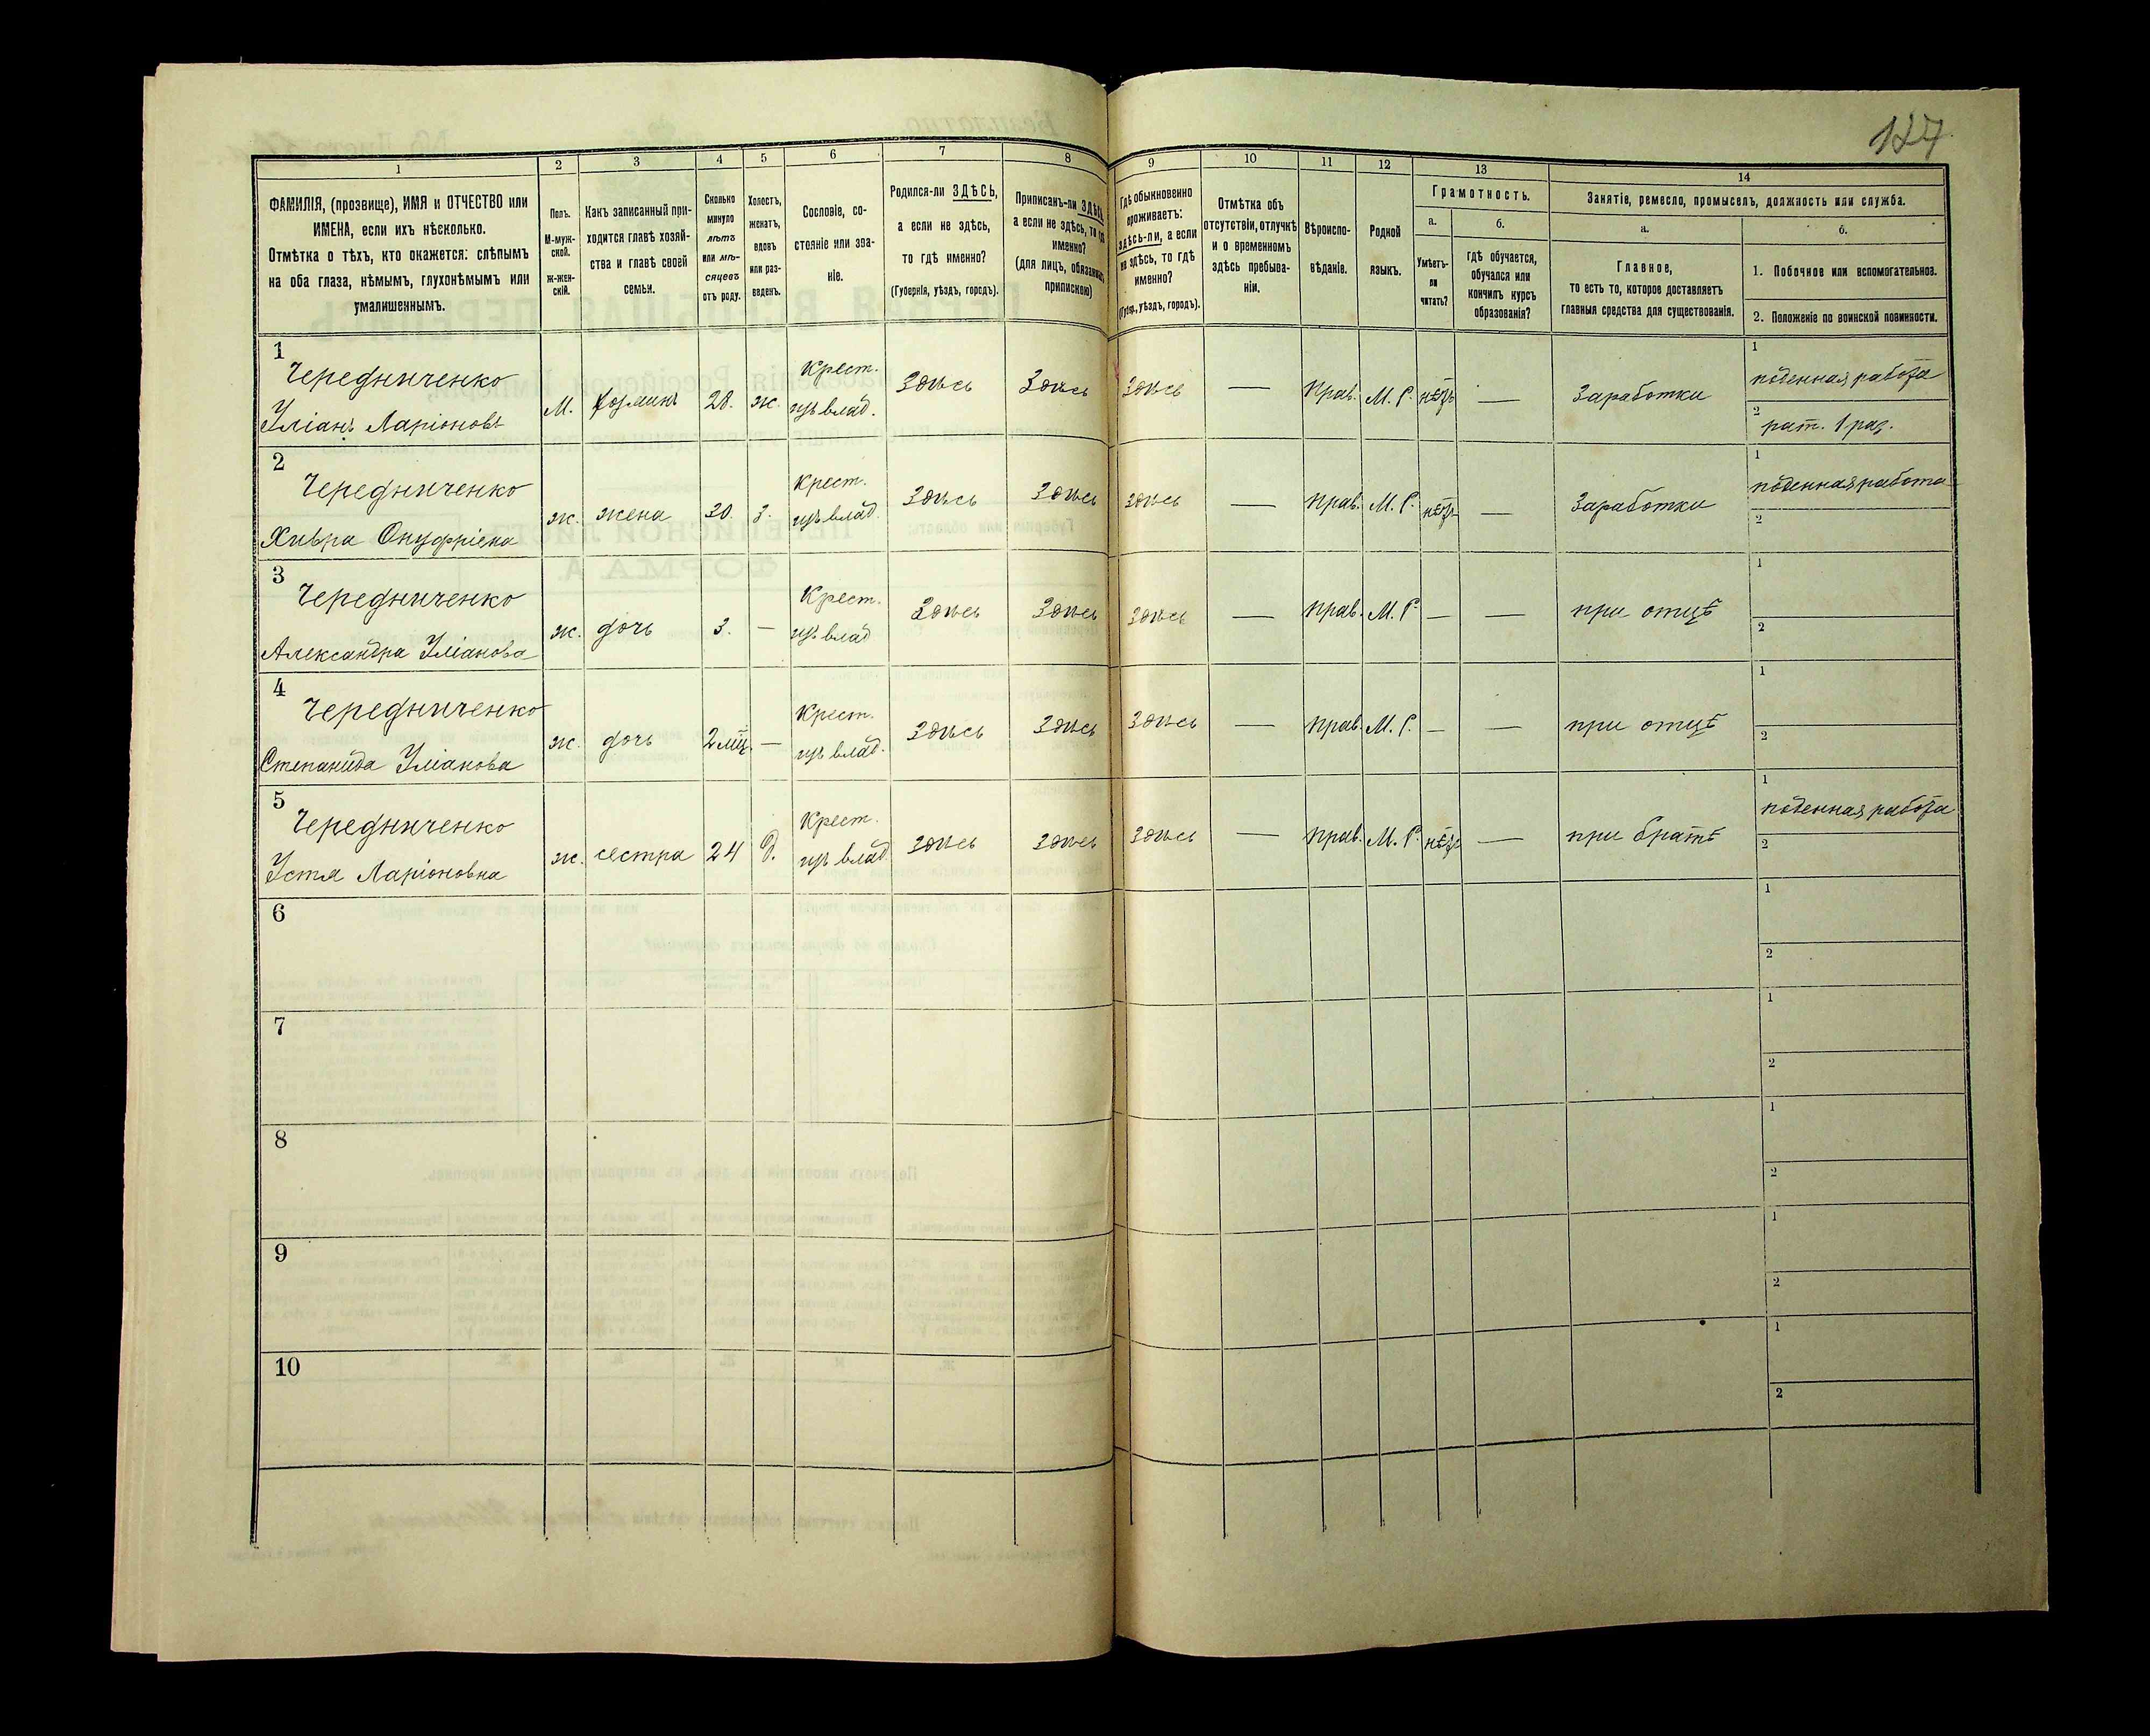 127
1
2
3
4
5
6
7
8
9
10
11
12
13
14
ФАМИЛІЯ, (прозвище), ИМЯ и ОТЧЕСТВО или
ИМЕНА, если ихъ нѣсколько.
Отмѣтка о тѣхъ, кто окажется: слѣпымъ
на оба глаза, нѣмымъ, глухонѣмымъ или
умалишеннымъ.
Полъ.
М-муж-
ской.
Ж-жен-
скій.
Какъ записанный при-
ходится главѣ хозяй-
ства и главѣ своей
семьи.
Сколько
минуло
лѣтъ
или мѣ-
сяцевъ
отъ роду.
Холостъ,
женатъ,
вдовъ
или раз-
веденъ.
Сословіе, со-
стояніе или зва-
ніе.
Родился-ли ЗДѢСЬ,
а если не здѣсь,
то гдѣ именно?
(Губернія, уѣздъ, городъ).
Приписанъ-ли ЗДѢСЬ,
а если не здѣсь, то гдѣ
именно?
(для лицъ, обязанныхъ
припискою)
Гдѣ обыкновенно
проживаетъ:
здѣсь-ли, а если
не здѣсь, то гдѣ
именно?
(Губер., уѣздъ, городъ).
Отмѣтка объ
отсутствіи, отлучкѣ
и о временномъ
здѣсь пребыва-
ніи.
Вѣроиспо-
вѣданіе.
Родной
языкъ.
Грамотность.
а.
Умѣетъ-
ли
читать?
б.
гдѣ обучается,
обучался или
кончилъ курсъ
образованія?
Занятіе, ремесло, промыселъ, должность или служба.
а.
Главное,
то есть то, которое доставляетъ
главныя средства для существованія.
б.
1. Побочное или вспомогательное.
2. Положеніе по воинской повинности.
1
Чередниченко
Уліанъ Ларіоновъ
М. хозяинъ 28. ж. Крест. изъ влад. Здѣсь Здѣсь Здѣсь — Прав. М. Р. нѣтъ — Заработки
1 поденная работа
2 рат. 1 раз.
2
Чередниченко
Хивра Онуфріева
ж. жена 30. з. Крест. изъ влад. Здѣсь Здѣсь Здѣсь — Прав. М. Р. нѣтъ — Заработки
1 поденная работа
2
3
Чередниченко
Александра Уліанова
ж. дочь 3. — Крест. изъ влад Здѣсь Здѣсь Здѣсь — Прав. М. Р. — — при отцѣ
1
2
4
Чередниченко
Степанида Уліанова
ж. дочь 2 мц. — Крест. изъ влад. Здѣсь Здѣсь Здѣсь — Прав. М. Р. — — при отцѣ
1
2
5
Чередниченко
Устя Ларіоновна
ж. сестра 24 д. Крест. изъ влад. Здѣсь Здѣсь Здѣсь — Прав. М. Р. нѣтъ — при братѣ
1 поденная работа
2
6
1
2
7
1
2
8
1
2
9
1
2
10
1
2